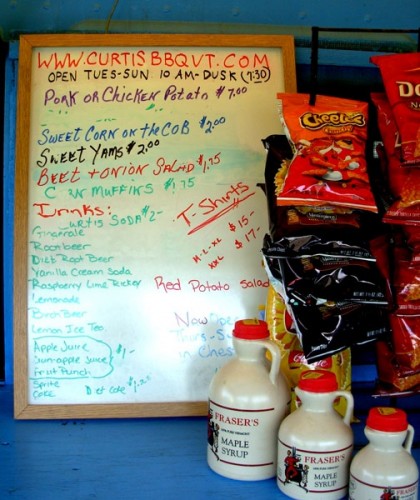 WWW.CURTISBBQVT.COM
OPEN TUES-SUN 10 AM-DUSK (7:30)
PORK OR CHICKEN POTATO $7.00
SWEET CORN ON THE COB $2.00
SWEET YAMS $2.00
BEET + ONION SALAD $1.75
C RN MUFFINS $1.75
DRINKS:
URTIS SODA $2-
Gingerale
Rootbeer
Diet Root Beer
Vanilla Cream Soda
Raspberry Lime Rickey
Lemonade
Birch Beer
Lemon Ice Tea
Apple Juice
Fruit Punch
$1-
Sprite
Coke
Diet Coke
T-Shirts
M-L-XL $15-
XXL $17-
Red Potato Salad
Now Open
Thurs-S
in Ches
Cheetos
Crunchy
FRASER'S
MAPLE
SYRUP
FRASER'S
MAPLE
SYRUP
FRASER'S
MAPLE
SYRUP